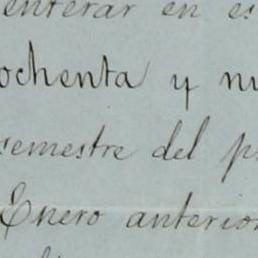 enterar en es
ochenta y nu
semestre del p
Enero anterior